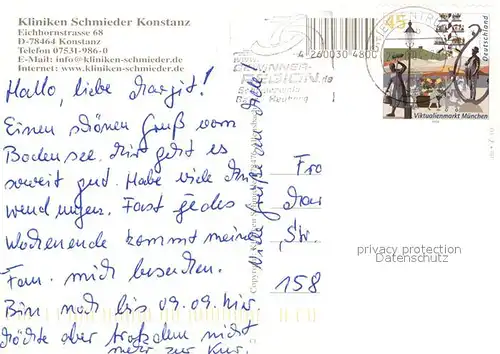 Kliniken Schmieder Konstanz
Eichhornstrasse 68
D-78464 Konstanz
Telefon 07531-986-0
E-Mail: info@kliniken-schmieder.de
Internet: www.kliniken-schmieder.de
Hallo, liebe Margit!
Einen schönen Gruß vom
Bodensee. Mir geht es
soweit gut. Habe viele An
wendungen. Fast jedes
Wochenende kommt meine
Fam. mich besuchen.
Bin noch bis 09.09. hier.
Möchte aber trotzdem nicht
mehr zur Kur.
Viele Grüße an alle!
4 260030 4800
45
Deutschland
Viktualienmarkt München
BRIEFZENTRUM
Fra
Mar
Str.
158
privacy protection
Datenschutz